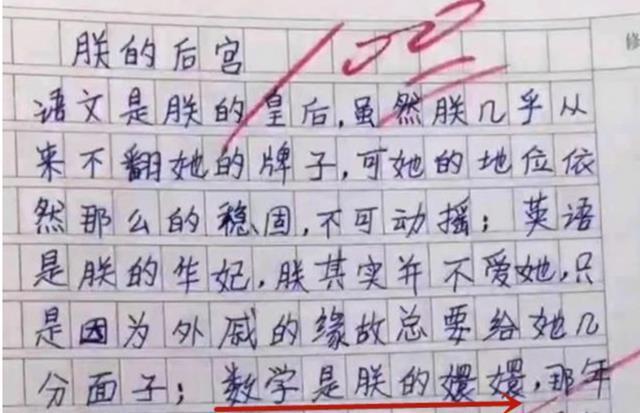 朕的后宫
100
语文是朕的皇后,虽然朕几乎从
来不翻她的牌子,可她的地位依
然那么的稳固,不可动摇;英语
是朕的华妃,朕其实并不爱她,只
是因为外戚的缘故总要给她几
分面子;数学是朕的嬛嬛,那年